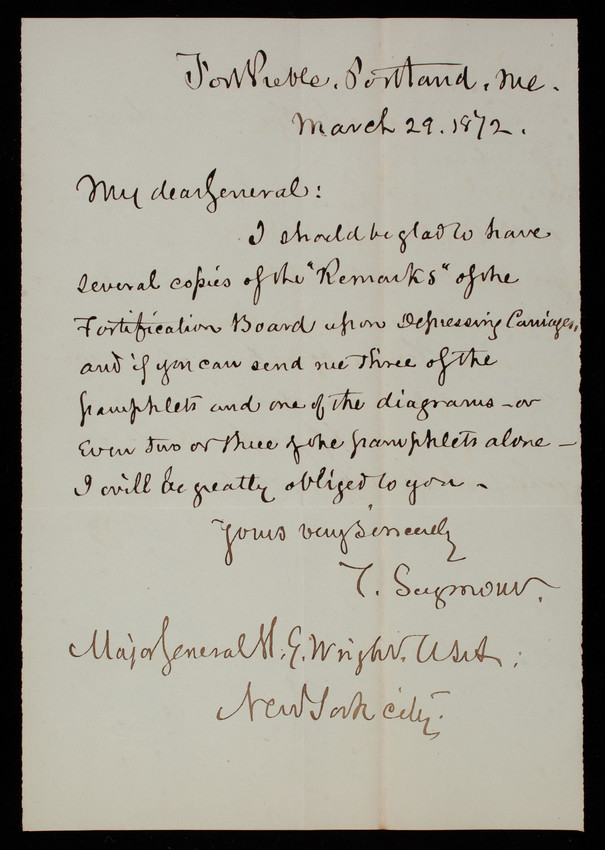 Fort Preble. Portland. Me.
March 29. 1872.
My dear General:
I should be glad to have
several copies of the "Remarks" of the
Fortification Board upon Depressing Carriages,
and if you can send me three of the
pamphlets and one of the diagrams - or
even two or three of the pamphlets alone -
I will be greatly obliged to you -
Yours very sincerely
T. Seymour.
Major General H. G. Wright. USA:
New York city.